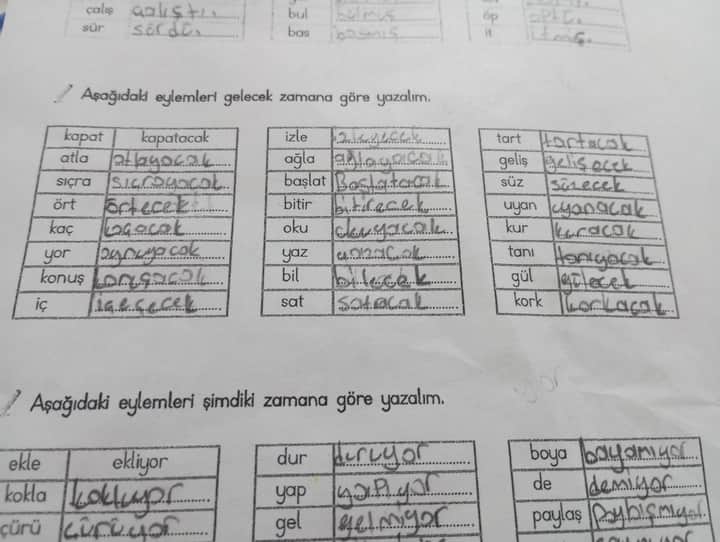 çalış çalıştı. bul bulmuş öp
sür sürdü. bas basmış it itmiş.
Aşağıdaki eylemleri gelecek zamana göre yazalım.
kapat kapatacak izle izleyecek tart tartacak
atla atlayacak ağla ağlayacak geliş gelişecek
sıçra sıcrayacak başlat Başlatacak süz sürecek
ört örtecek bitir bitirecek uyan uyanacak
kaç kaçacak oku okuyacak kur kuracak
yor yaz tanı tanıyacak
konuş bil bilecek gül gülecek
iç sat satacak kork korkacak
Aşağıdaki eylemleri şimdiki zamana göre yazalım.
ekle ekliyor dur duruyor boya boyamıyor
kokla kokluyor yap yapıyor de demiyor
çürü çürüyor gel gelmiyor paylaş